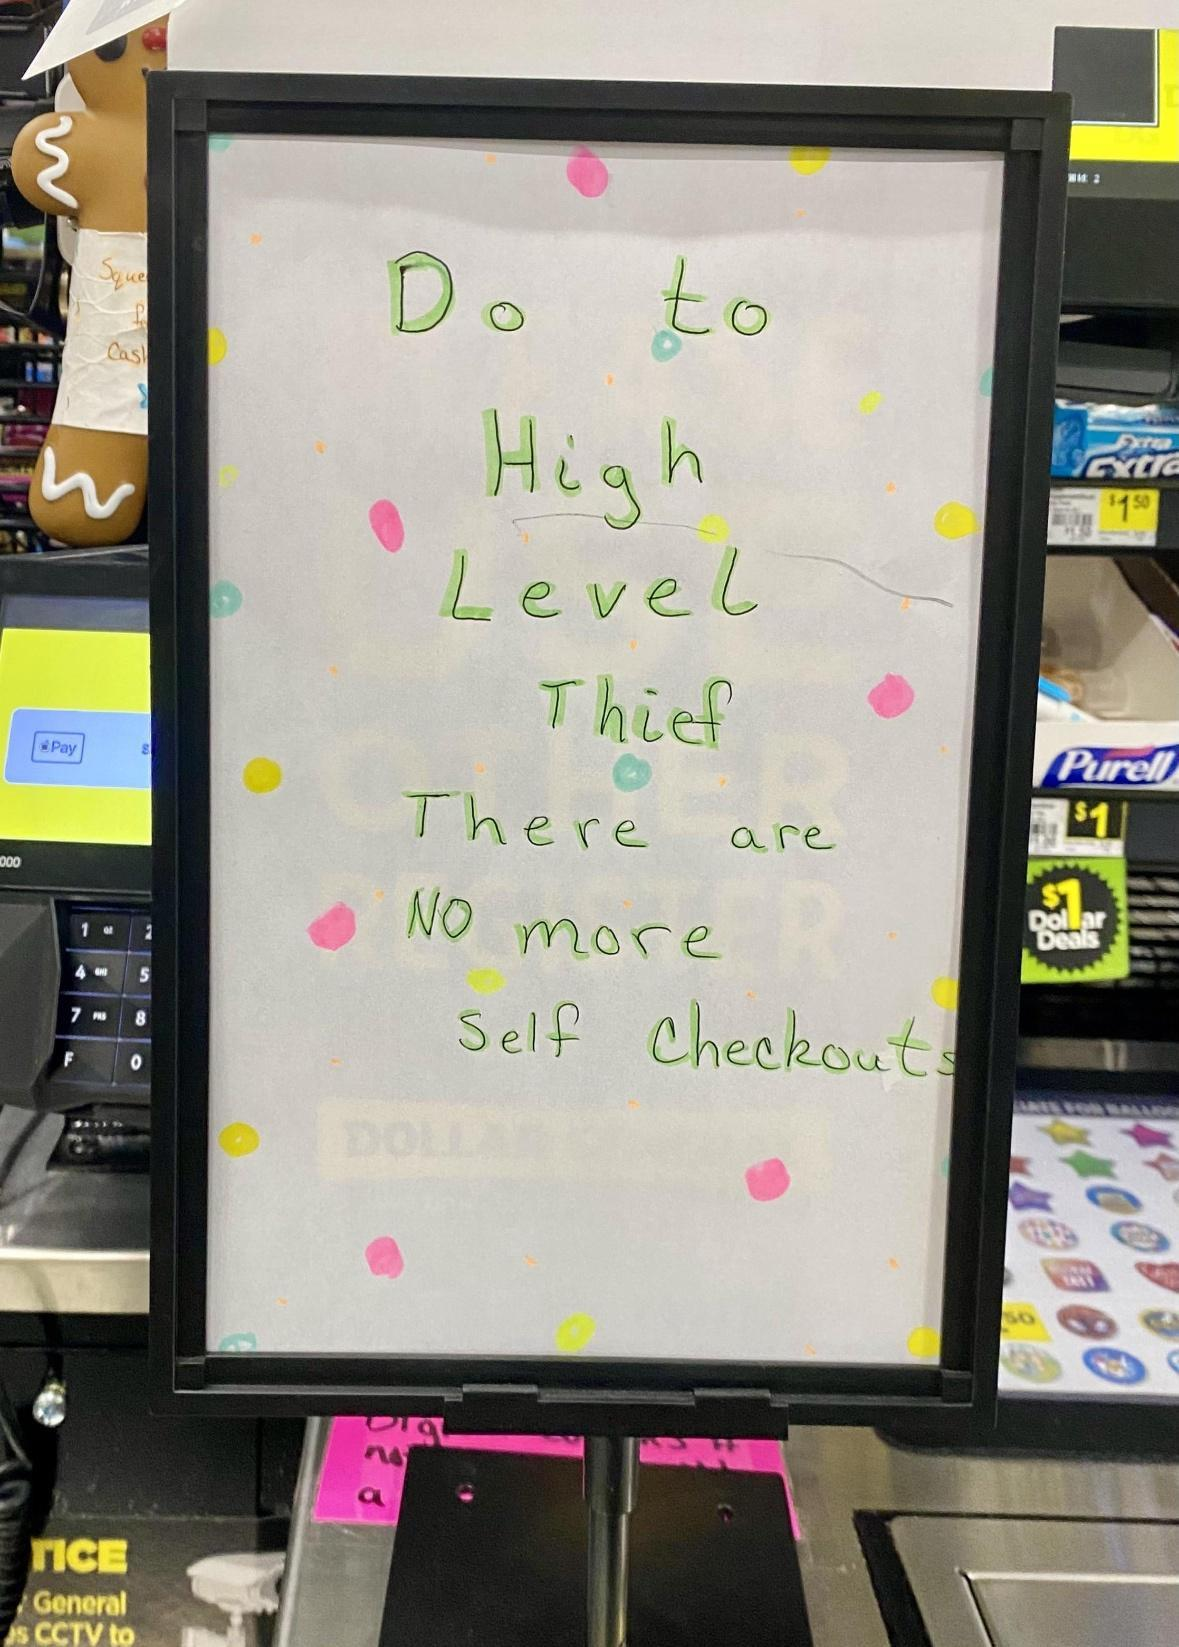 Do to
High
Level
Thief
There are
No more
Self Checkouts
Pay
000
1
2
4 GHI 5
7 PRS 8
F 0
Cash
Extra
Extra
$1 50
Purell
$1
$1
Dollar
Deals
DOLLAR
a
General
CCTV to